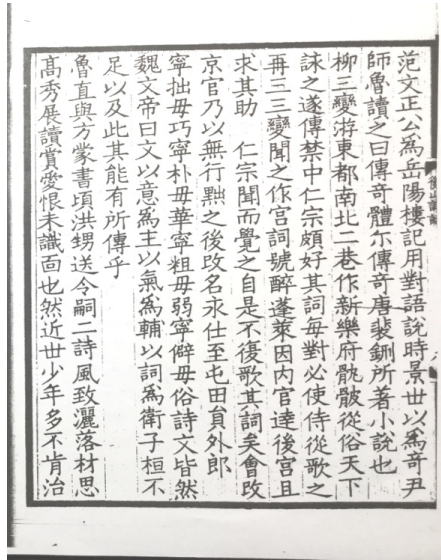 范文正公為岳陽樓記用對語說時景世以為奇尹
師魯讀之曰傳奇體尔傳奇唐裴鉶所著小說也
柳三變游東都南北二巷作新樂府骩骳從俗天下
詠之遂傳禁中仁宗頗好其詞每對必使侍從歌之
再三三變聞之作宮詞號醉蓬萊因内官達後宮且
求其助　仁宗聞而覺之自是不復歌其詞矣會改
京官乃以無行黜之後改名永仕至屯田貟外郎
寧拙毋巧寧朴毋華寧粗毋弱寧僻毋俗詩文皆然
魏文帝曰文以意為主以氣為輔以詞為衛子桓不
足以及此其能有所傳乎
魯直與方蒙書頃洪甥送令嗣二詩風致灑落材思
高秀展讀賞愛恨未識面也然近世少年多不肯治